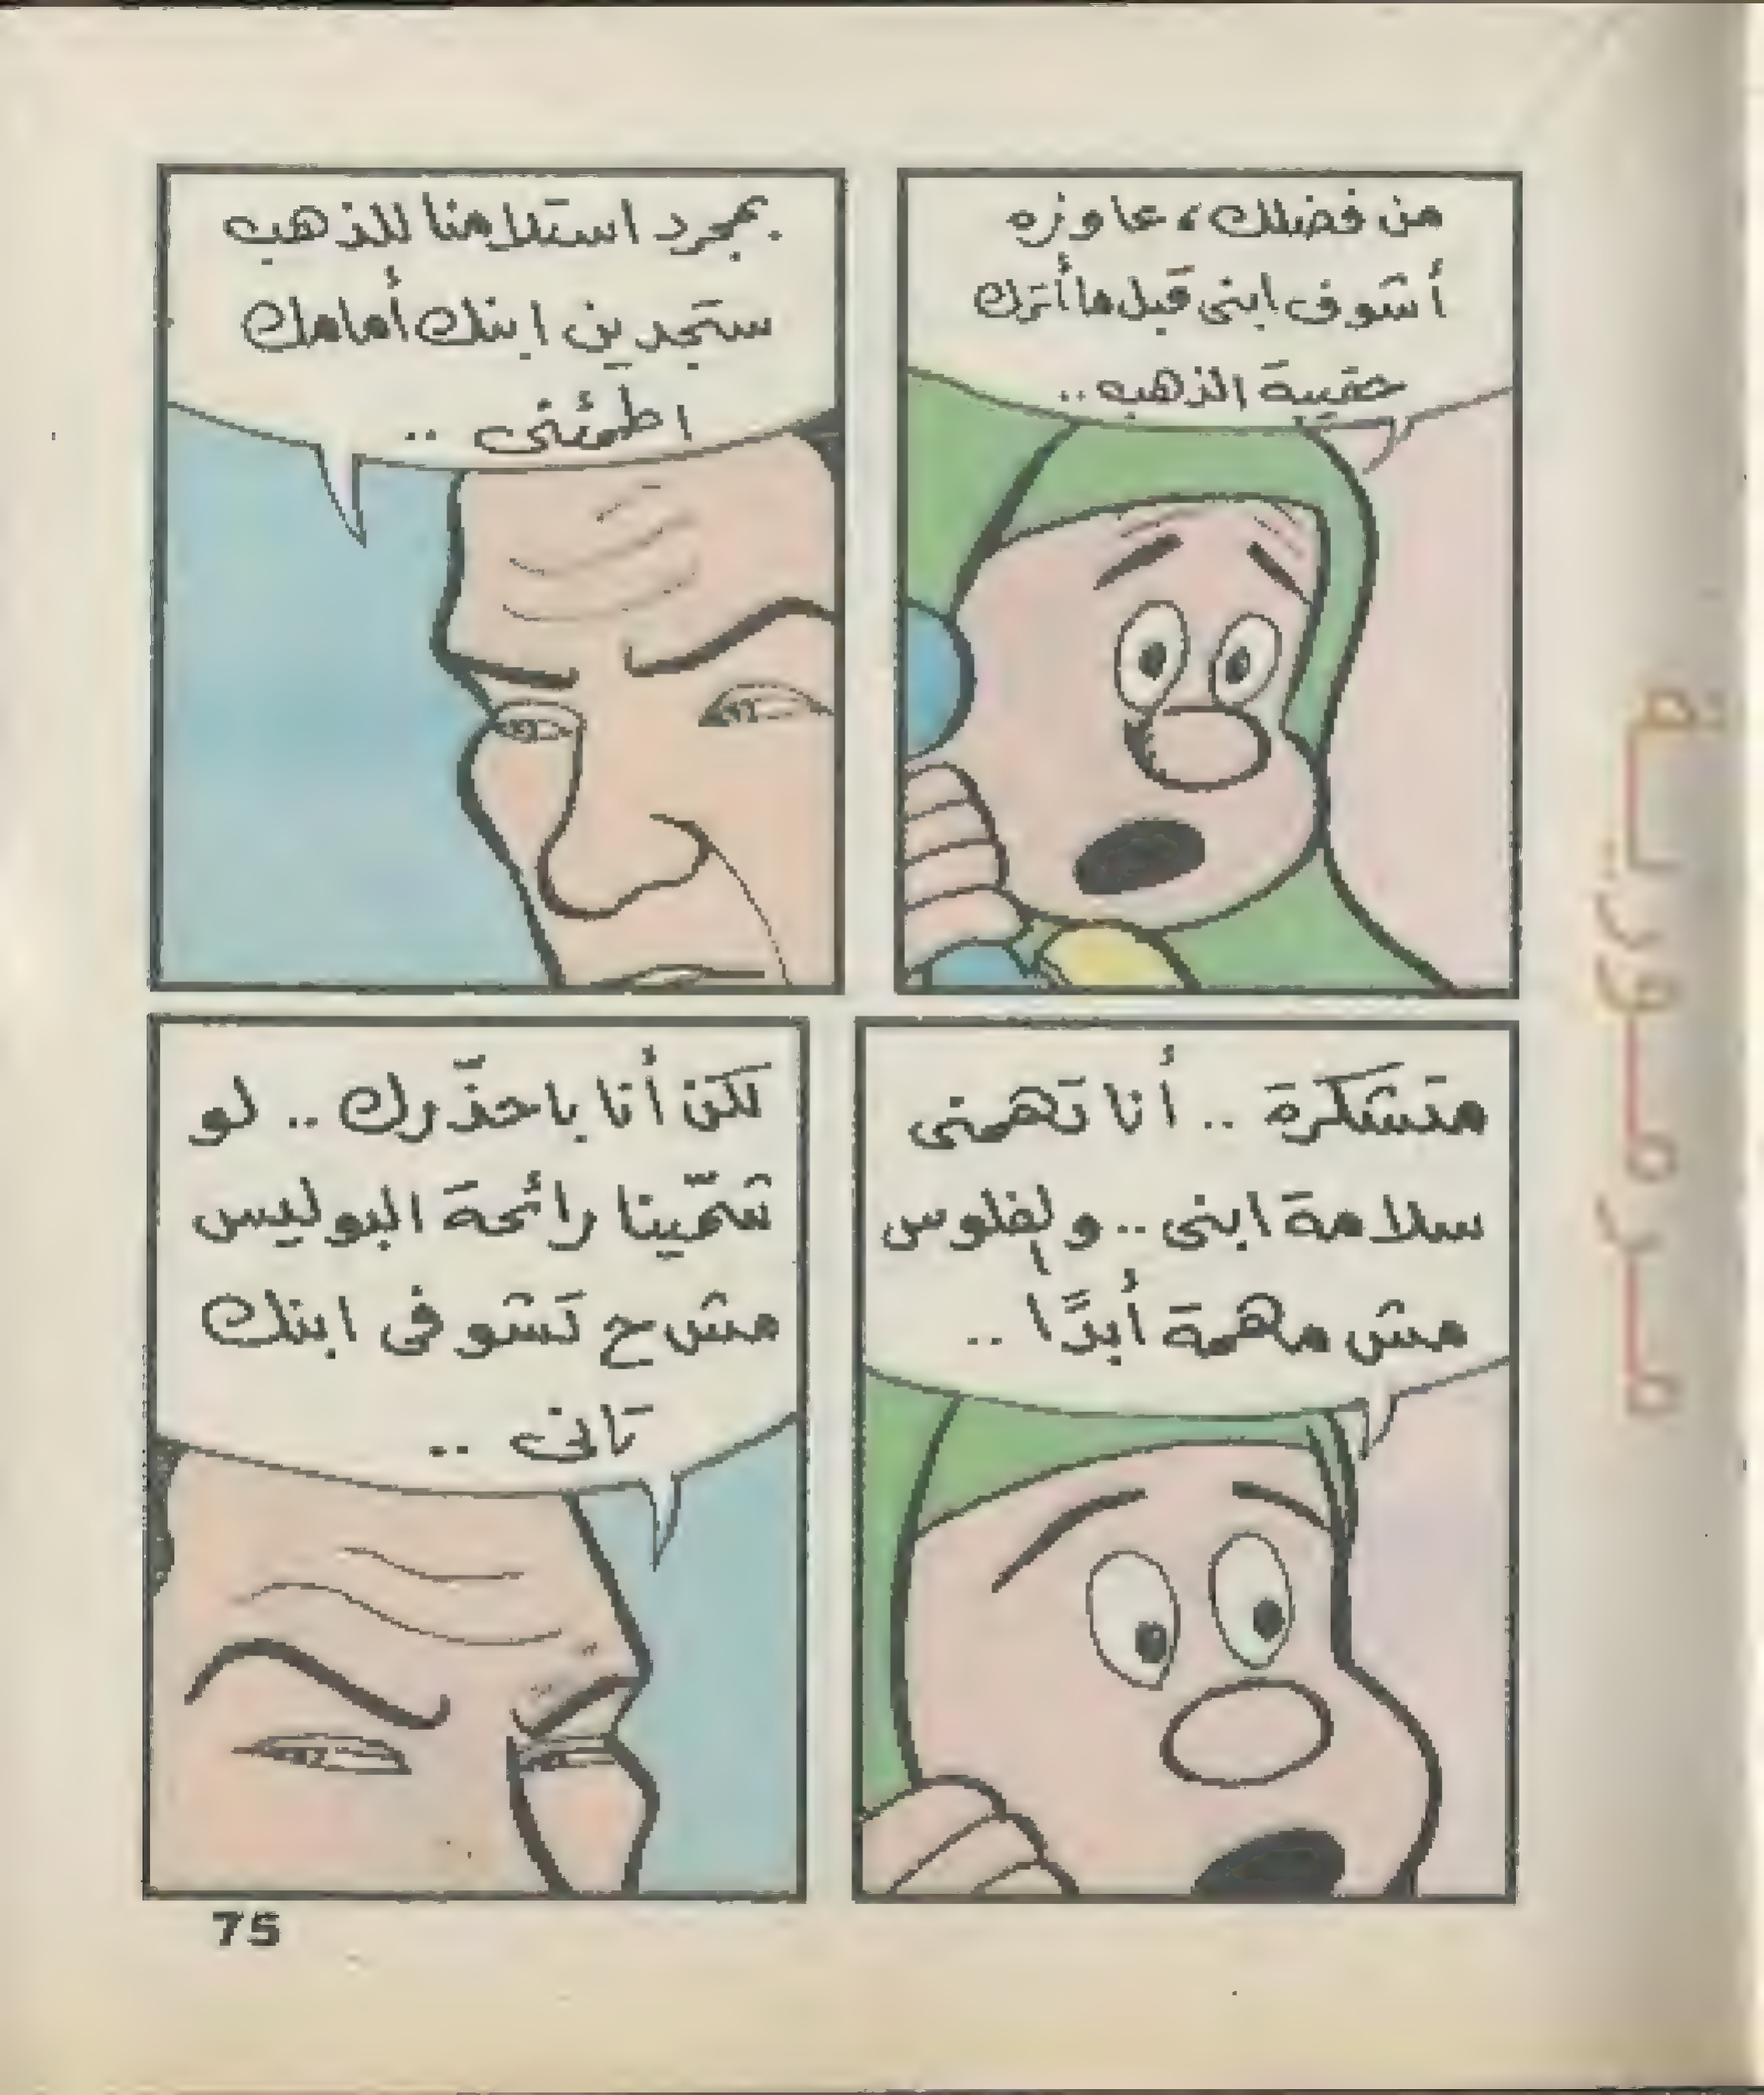 من فضلك، عاوزه
أشوف ابنى قبل ما أترك
حقيبة الذهب..
بمجرد استلامنا للذهب
ستجدين ابنك أمامك
اطمئنى ..
متشكرة .. أنا تهمنى
سلامة ابنى .. والفلوس
مش مهمة أبدًا ..
لكن أنا باحذّرك .. لو
شمّينا رائحة البوليس
مش ح تشوفى ابنك
تانى ..
75